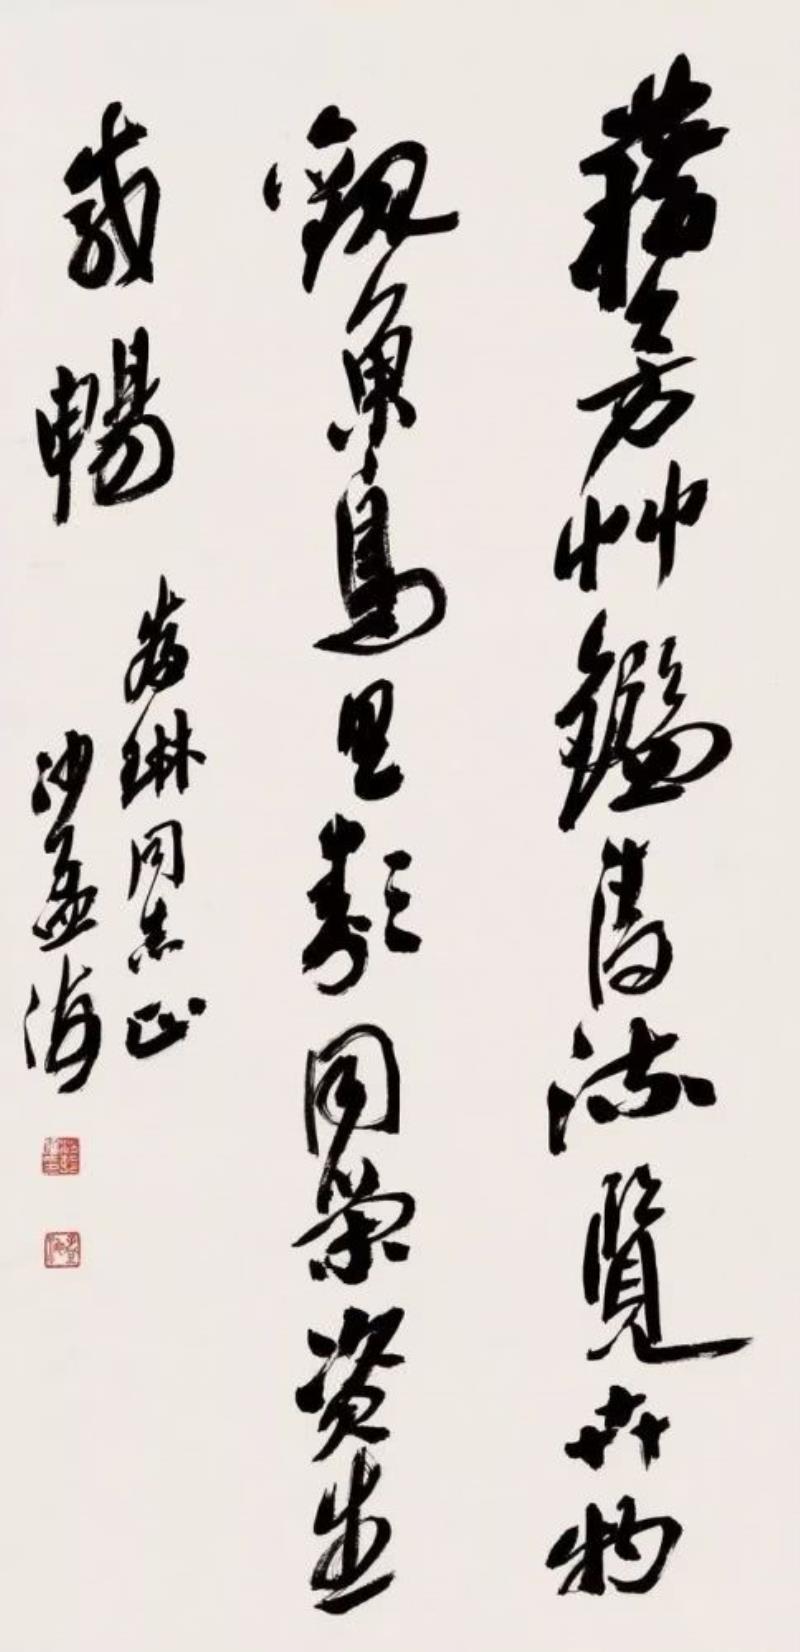 藉芳艸鑑清流覽卉物
觀魚鳥具類同榮資生
咸暢
琳同志正
沙孟海